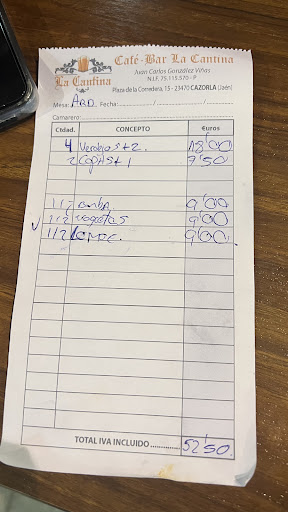 Café-Bar La Cantina
Juan Carlos González Viñas
N.I.F. 75.115.570 - P
Plaza de la Corredera, 15 - 23470 CAZORLA (Jaén)
La Cantina
Mesa: Fecha: / /
Camarero:
Ctdad. CONCEPTO Euros
4 +2. 18'00
2 Copas+1 7'50
1/2 9'00
1/2 9'00
1/2 9'00
TOTAL IVA INCLUIDO 52'50